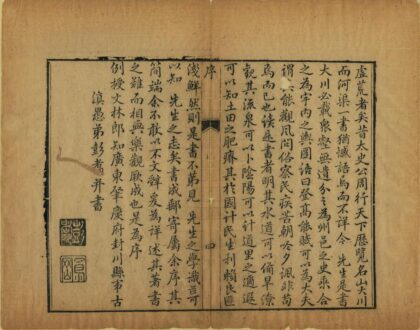 虛荒者矣昔太史公周行天下歷覽名山大川
而河渠一書猶識語焉而不詳今先生是書
大川必載衆壑無遺分之為州邑之史乘合
之為宇內之輿圖語曰登高能賦可以為大夫
謂其能觀風問俗察民疾苦朝吟夕諷非苟
焉而已也讀是書者明其水道可以備旱潦
觀其流泉可以卜陰陽可以計道里之遐
可以知土田之肥瘠其於國計民生利賴良匪
序
四
淺鮮然則是書不第見先生之學識言可
以知先生之志矣書成郵寄屬余序其
簡端余不敢以不文辭爰為詳述其著書
之而相與樂觀厥成也是為序
例授文林郎知廣東肇慶府封川縣事古
滇愚弟彭并書